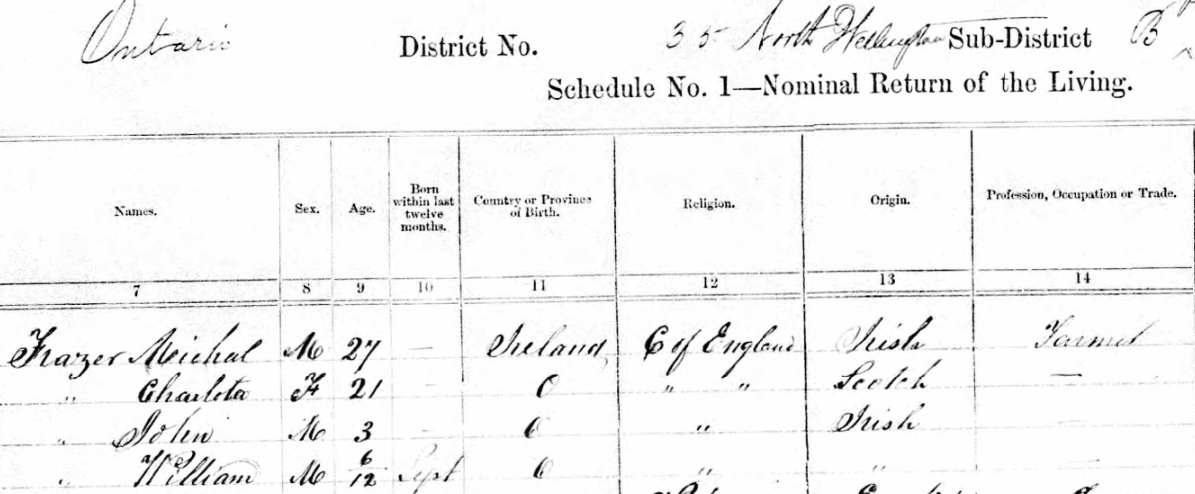 Ontario District No. 35 North Wellington Sub-District B
Schedule No. 1—Nominal Return of the Living.
Names. Sex. Age. Born within last twelve months. Country or Province of Birth. Religion. Origin. Profession, Occupation or Trade.
7 8 9 10 11 12 13 14
Frazer Meichal M 27 — Ireland C of England Irish Farmer
" Charlota F 21 — O " " Scotch —
" John M 3 — O " Irish
" William M 6/12 Sept O " "